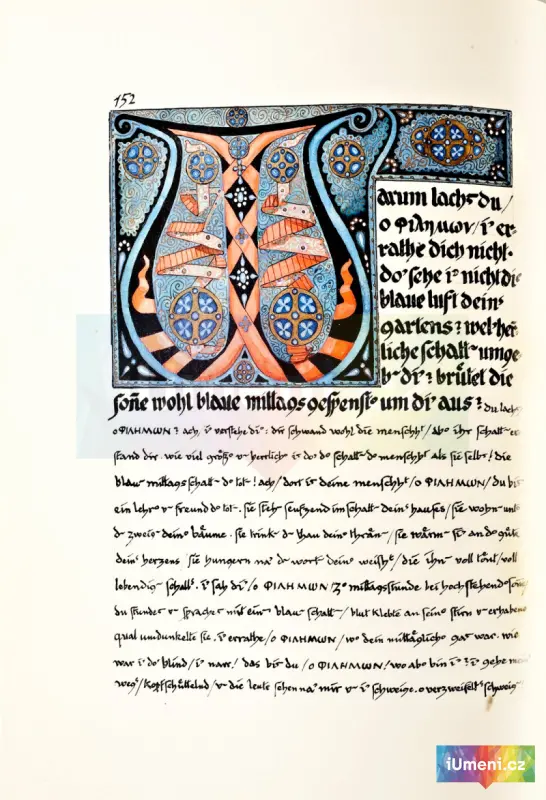 152
W
arum lachst du/
o ΦΙΛΗΜΩΝ/ i err-
rathe dich nicht.
do' sehe i' nicht die
blaue luft dein'
gartens? welche' herr-
liche schatt- umge
b- di'? brütet die
soñe wohl blaue mittagsgespenst' um di' aus? du lachst
o ΦΙΛΗΜΩΝ? ach, i' verstehe di': dir schwand wohl die menschht/ abe' ihr schatt- er-
stand dir. wie viel größ' v- herrliche' is' do' do' schatt- do' menschht als sie selbst! die
blau- mittagsschatt- do' tot-! ach/ dort is' deine menschht/ o ΦΙΛΗΜΩΝ/ du bis'
ein lehro' v- freund do' tot-. sie steh- seufzend im schatt- dein' hauses/ sie wohn- unt'
d- zweig- deino' bäume. sie trink- d- thau deino' thrän-/ sie wärm- si' an do' güte
dein' herzens. sie hungern na' d- wort- deino' weishht/ die ihn- voll tönt/ voll
lebendig- schalls. i' sah di'/ o ΦΙΛΗΜΩΝ/ zo' mittagsstunde bei hochstehendo' soñe
du standest v- sprachst mit ein- blau- schatt-/ blut klebte an seino' stirn v- erhabene
qual umdunkelte sie. i' errathe/ o ΦΙΛΗΜΩΝ/ wo' dein mittägliche' gas' war. wie
war i' do' blind/ i' narr! das bis' du/ o ΦΙΛΗΜΩΝ! wo' abe' bin i'? i' gehe mein'
wegs/ kopfschüttelnd/ v- die leute sehen na' mir v- i' schweige. o verzweifelts schweig-
iUmeni.cz